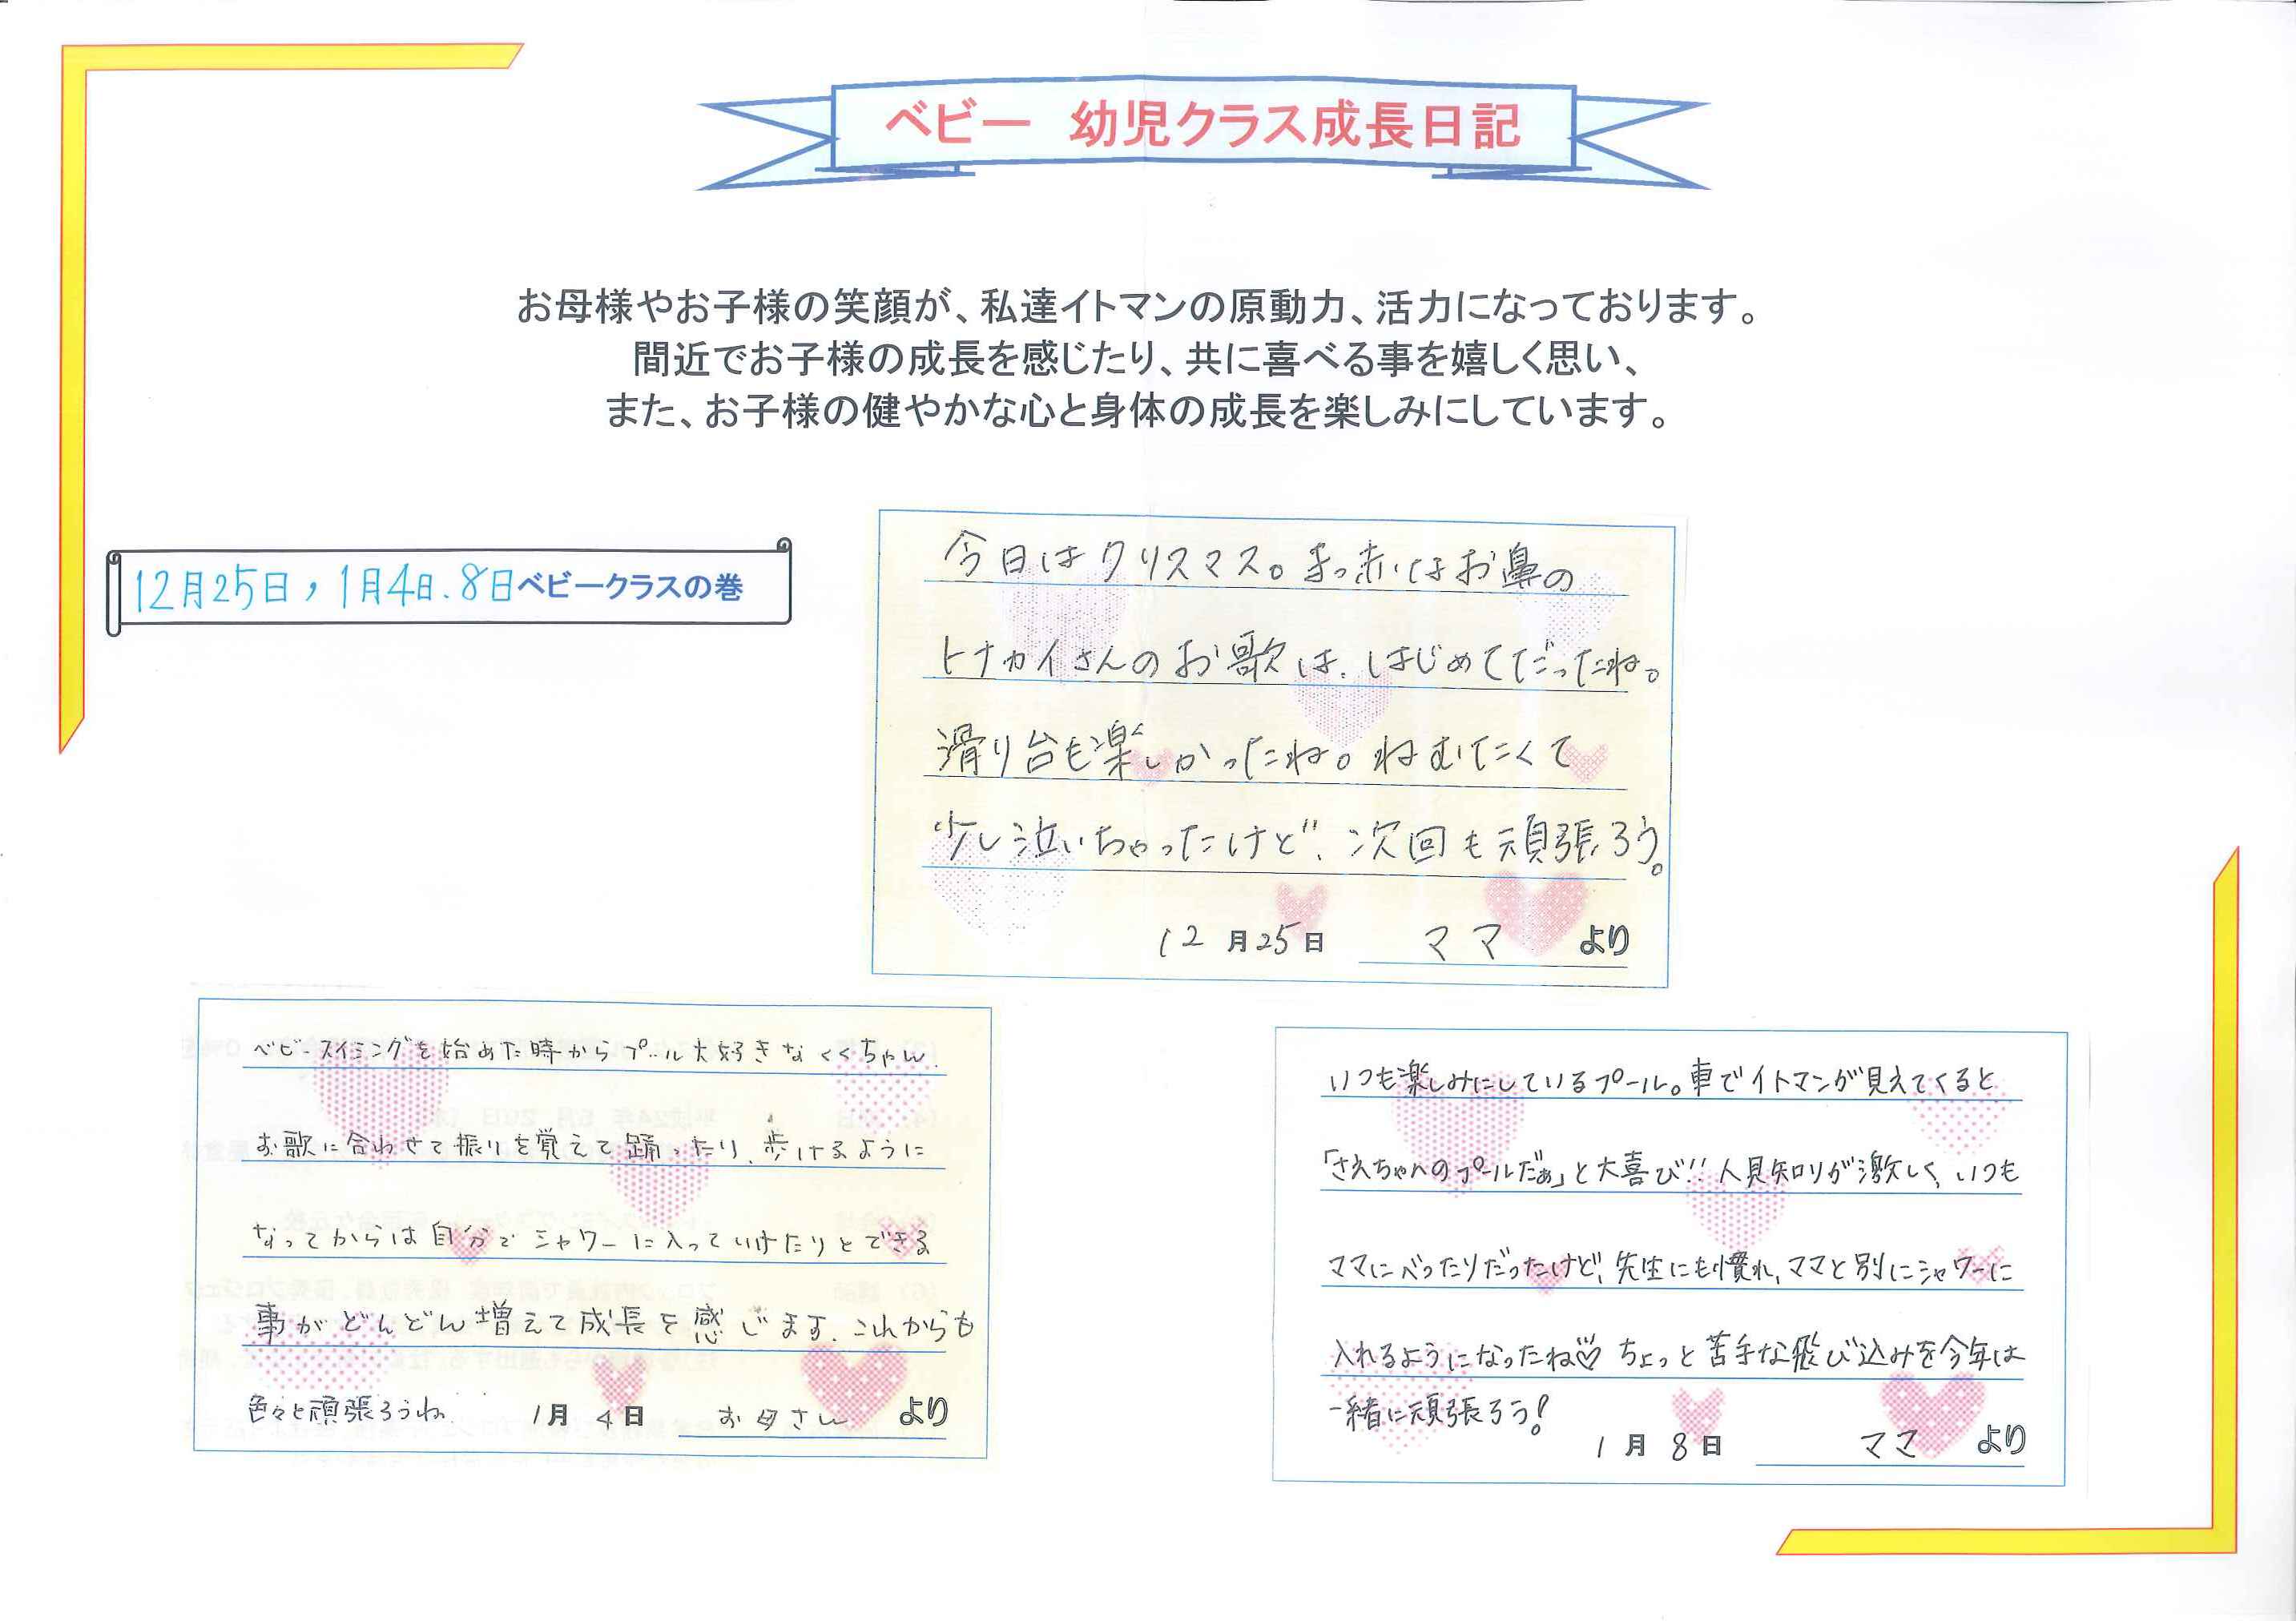 ベビー 幼児クラス成長日記
お母様やお子様の笑顔が、私達イトマンの原動力、活力になっております。
間近でお子様の成長を感じたり、共に喜べる事を嬉しく思い、
また、お子様の健やかな心と身体の成長を楽しみにしています。
12月25日，1月4日.8日ベビークラスの巻
今日はクリスマス。まっ赤なお鼻の
トナカイさんのお歌は、はじめてだったね。
滑り台も楽しかったね。ねむたくて
少し泣いちゃったけど、次回も頑張ろう。
12月25日 ママ より
ベビースイミングを始めた時からプール大好きなくくちゃん。
お歌に合わせて振りを覚えて踊ったり、歩けるように
なってからは自分でシャワーに入っていけたりとできる
事がどんどん増えて成長を感じます。これからも
色々と頑張ろうね 1月4日 お母さん より
いつも楽しみにしているプール。車でイトマンが見えてくると
「さえちゃんのプールだぁ」と大喜び!!人見知りが激しく、いつも
ママにべったりだったけど、先生にも慣れ、ママと別にシャワーに
入れるようになったね♡ ちょっと苦手な飛び込みを今年は
一緒に頑張ろう!
1月8日 ママ より